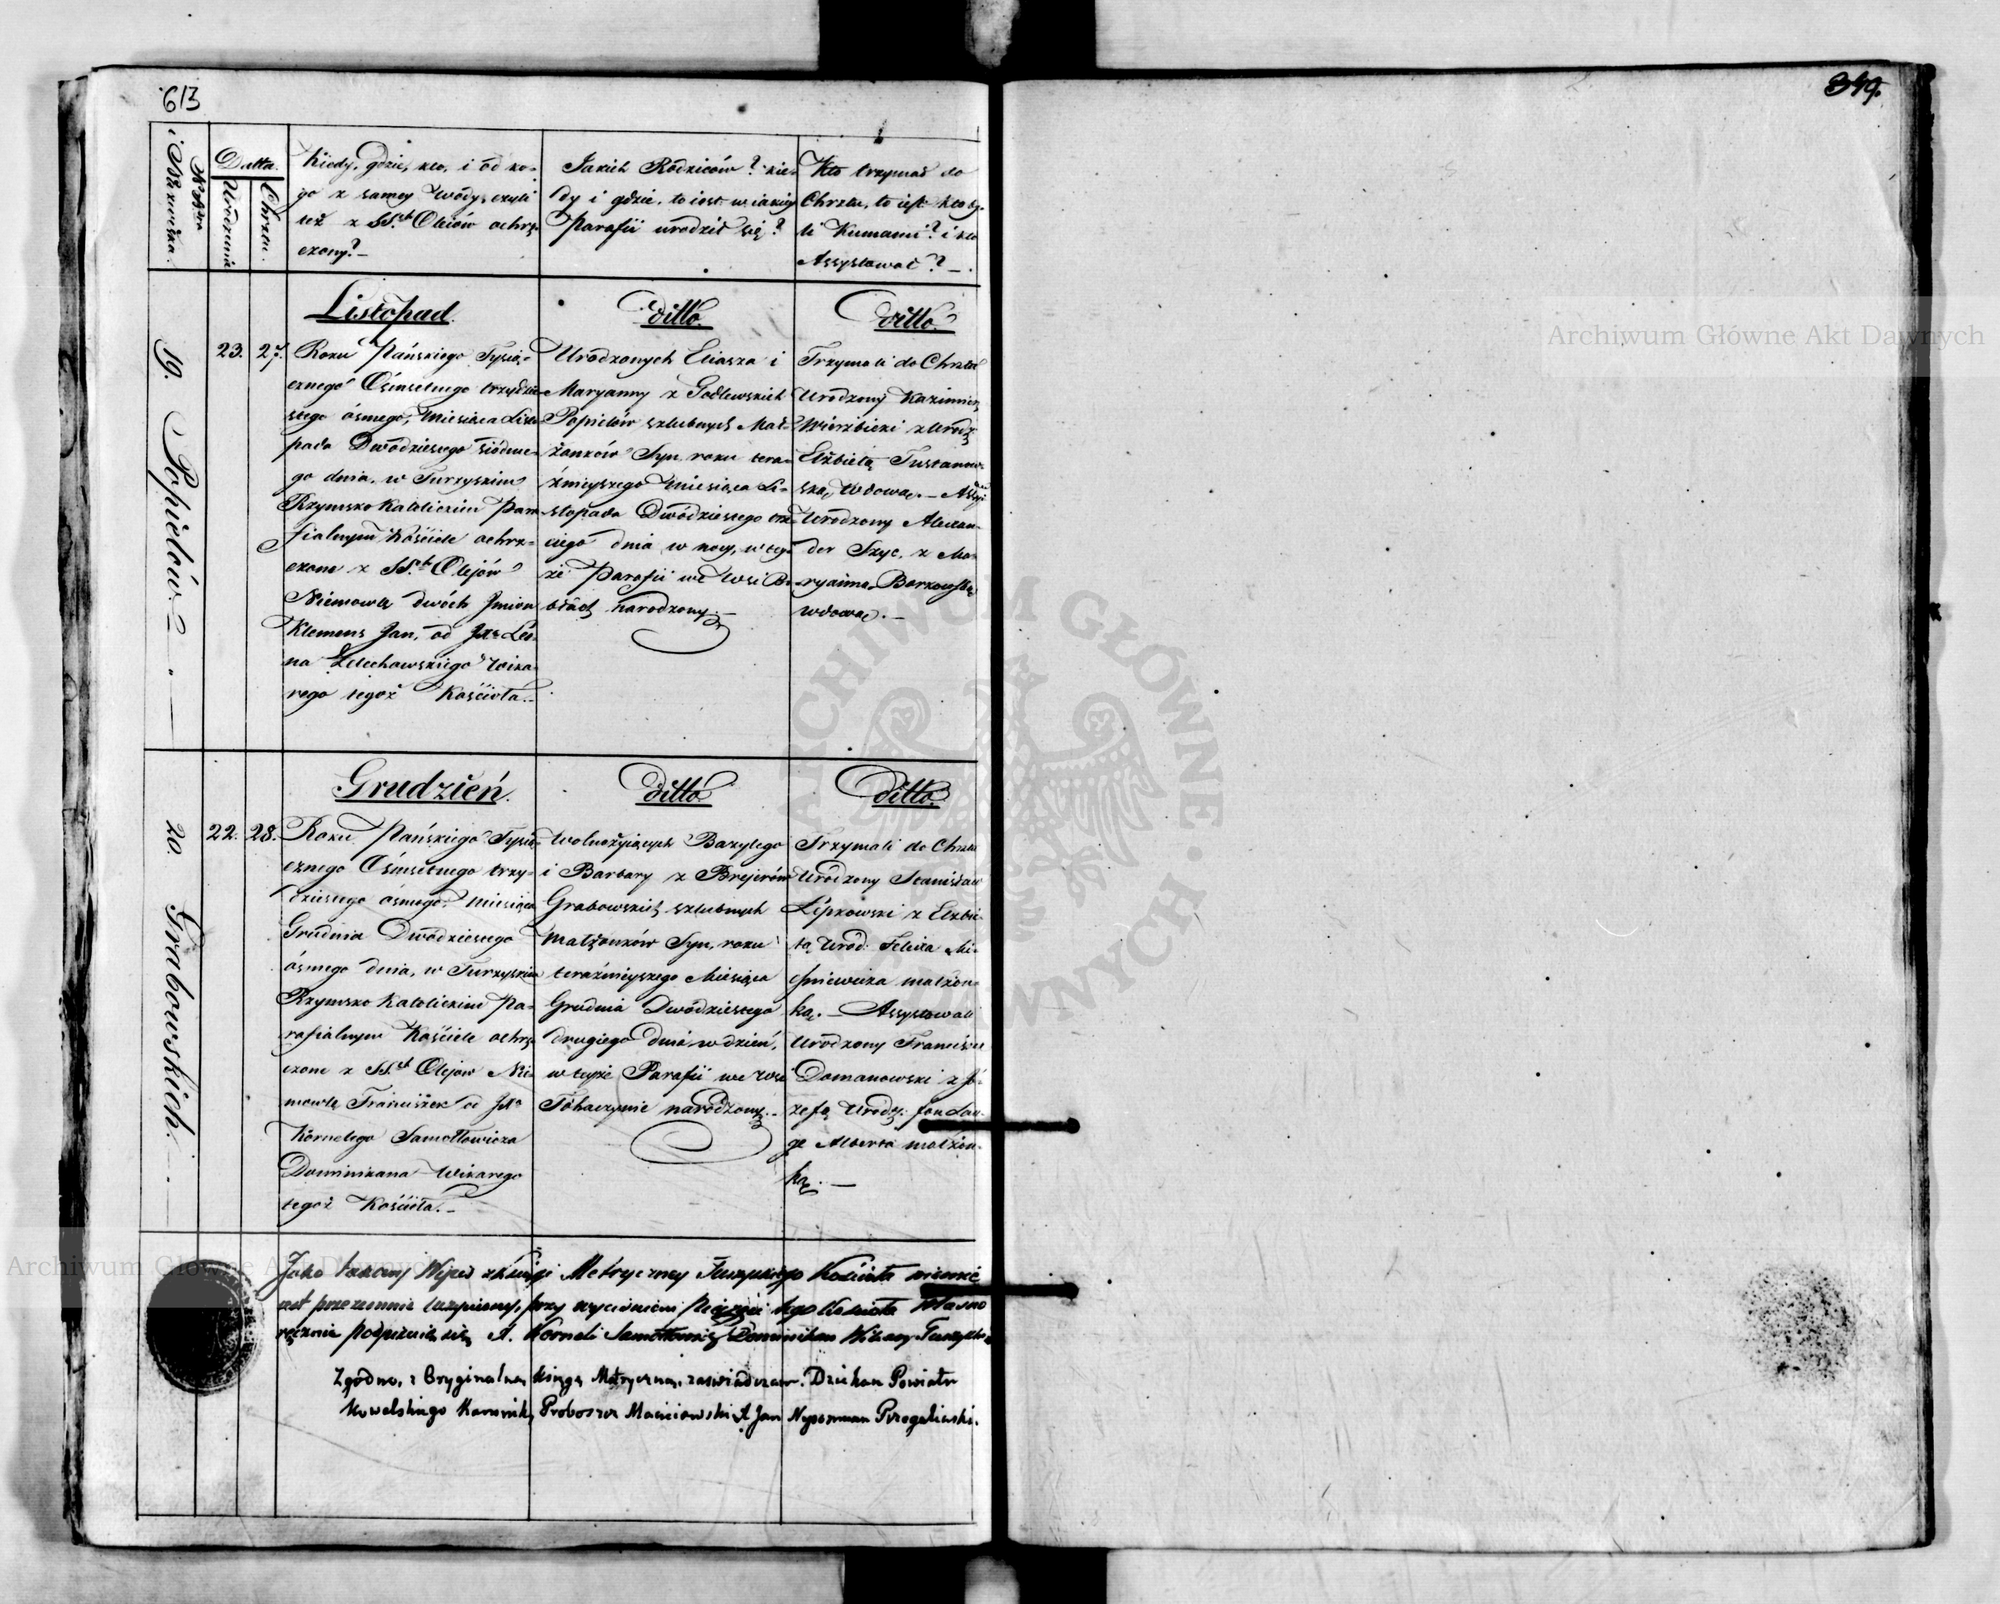 613
349.
Nr Aktów
i Nazwiska.
Datta.
Urodzenia
Chrztu.
Kiedy, gdzie, kto, i od ko-
go z samey Wody, czyli
też z SS.ch Oleiów ochrz-
czony? –
Jakich Rodziców? kie-
dy i gdzie, to iest w iakiey
Parafii urodził się?
Kto trzymał do
Chrztu, to iest kto by-
li Kumami? i kto
Assystował? –.
Listopad.
ditto.
ditto.
19. Popielów.
23.
27.
Roku Pańskiego Tysią-
cznego Ośmsetnego trzydzie-
stego ósmego, Miesiąca Listo-
pada Dwódziestego siódme-
go dnia, w Turzyskim
Rzymsko Katolickim Para-
fialnym Kościele ochrz-
czone z SS.ch Olejów
Niemowle dwóch Jmion
Klemens Jan, od JXa Leo-
na Żelechowskiego Wika-
rego tegoż Kościoła.–
Urodzonych Eliasza i
Maryanny z Godlewskich
Popielów szlubnych Mał-
żonków Syn, roku tera-
źnieyszego Miesiąca Li-
stopada Dwódziestego trze-
ciego dnia w nocy, w tey-
że Parafii we Wsi
narodzony.–
Trzymali do Chrztu
Urodzony Kazimierz
Wierzbicki z Urodz:
Elżbietą Tustanow-
ską Wdową. – Assyst:
Urodzony Alexan-
der Szyc, z Ma-
ryanną Borkowską
wdową. –
Grudzień.
ditto.
ditto.
20. Grabowskich.
22.
28.
Roku Pańskiego Tysią-
cznego Ośmsetnego trzy-
dziestego ósmego, Miesiąca
Grudnia Dwódziestego
ósmego dnia, w Turzyskim
Rzymsko Katolickim Pa-
rafialnym Kościele ochrz-
czone z SS.ch Olejów Nie-
mowle Franciszek od JXa
Kornelego Samotłowicza
Dominikana Wikarego
tegoż Kościoła. –
Wolnożyiących Bazylego
i Barbary z Brejerów
Grabowskich szlubnych
Małżonków Syn, roku
teraźnieyszego Miesiąca
Grudnia Dwódziestego
drugiego dnia w dzień,
w teyże Parafii we Wsi
narodzony.–
Trzymali do Chrztu
Urodzony Stanisław
Lipkowski z Elżbie-
tą Urod: Felixa
małżon-
ką. – Assystowali
Urodzony Franciszek
Domanowski z Jó-
zefą Urodz: fon Lan-
ge Alberta małżon-
ką. –
Jako takowy Wypis z Księgi Metryczney Turzyskiego Kościoła
jest przezemnie uczyniony, przy wyciśnieniu Pieczęci tego Kościoła Własno
ręcznie podpisuię się X. Korneli Samotłowicz Dominikan Wikary Turzyski
Zgodno, z Oryginalną Księgą Metryczną, zaświadczam. Dziekan Powiatu
Kowelskiego Kanonik, Proboszcz Maciejowski X Jan
Archiwum Główne Akt Dawnych
Archiwum Główne Akt Dawnych
ARCHIWUM GŁÓWNE AKT DAWNYCH